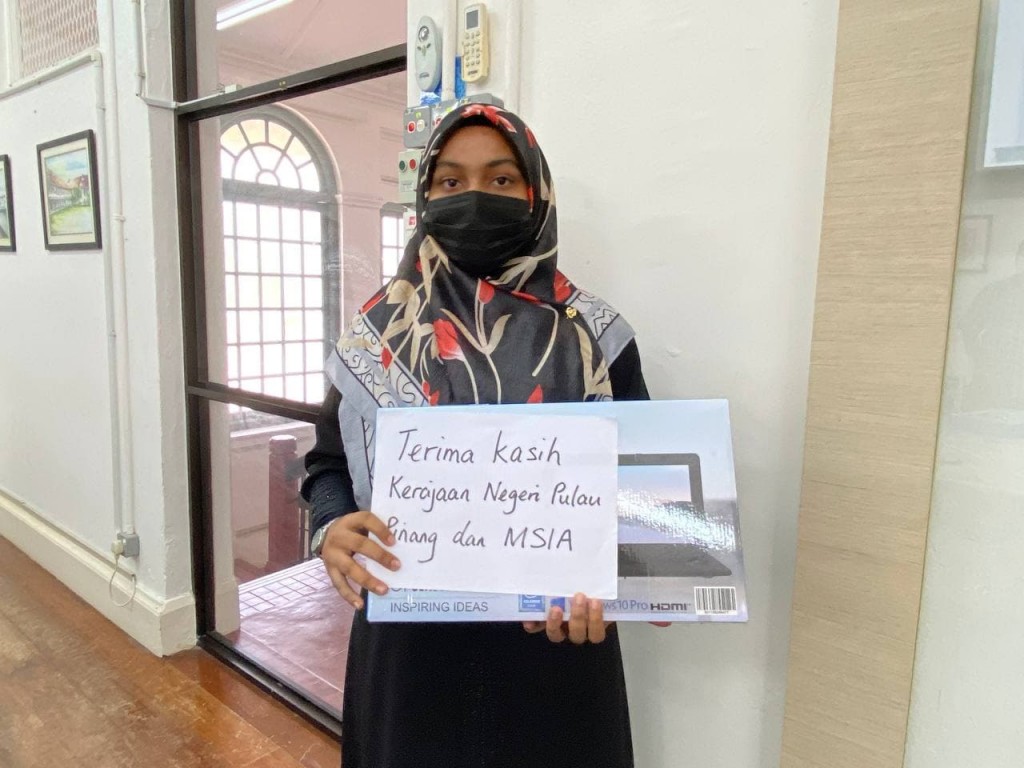 Terima kasih
Kerajaan Negeri Pulau
Pinang dan MSIA
INSPIRING IDEAS
10 Pro HDMI